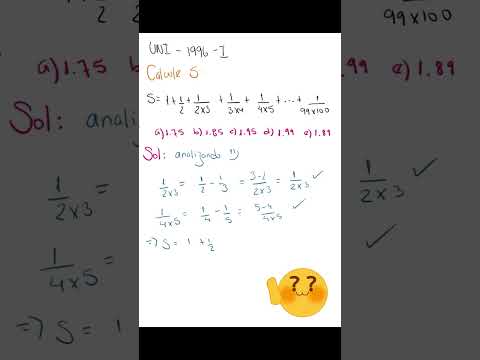 UNI - 1996 - I
Calcule S
S = 1 + 1/2 + 1/2x3 + 1/3x4 + 1/4x5 + ... + 1/99x100
a) 1.75 b) 1.85 c) 1.95 d) 1.99 e) 1.89
Sol: analizando !!)
1/2x3 = 1/2 - 1/3 = 3-2/2x3 = 1/2x3 ✓
1/4x5 = 1/4 - 1/5 = 5-4/4x5 ✓
=> S = 1 + 1/2